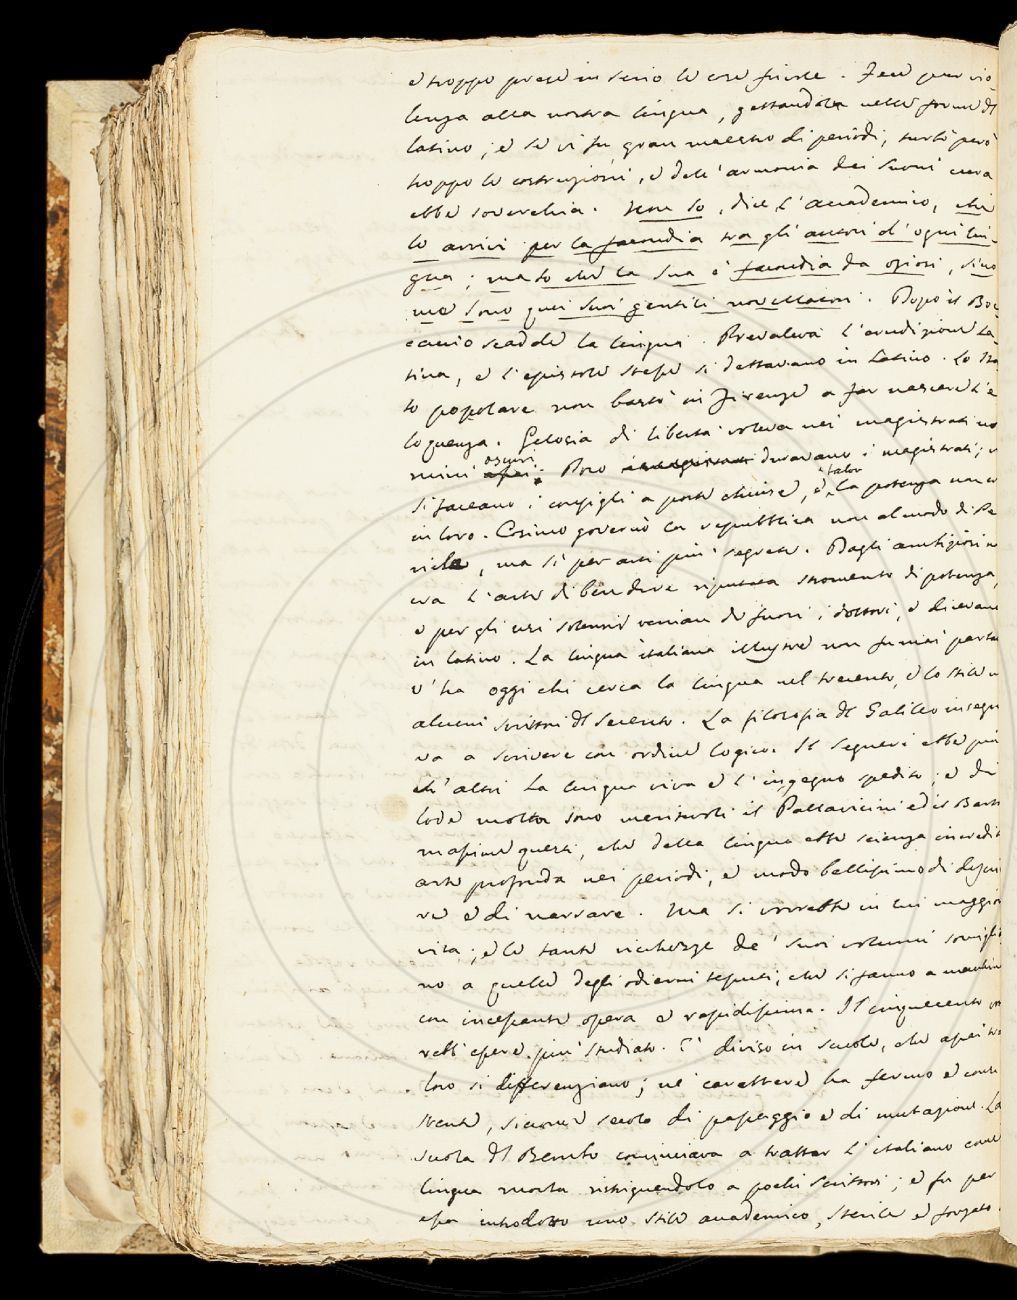 e troppo prese in serio le cose frivole. Fece pur vio
lenza alla nostra lingua, gettandola nelle forme del
latino; e se vi fu gran maestro di periodi, turbò però
troppo le costruzioni, e dell'armonia dei suoni cura
ebbe soverchia. Non so, dice l'accademico, chi
lo arrivi per la facondia tra gli autori d'ogni lin-
gua; ma so che la sua è facondia da oziosi, sicco
me sono quei suoi gentili novellatori. Dopo il Boc
caccio scadde la lingua. Prevaleva l'erudizione La
tina, e l'epistole stesse si dettavano in Latino. Lo sta
to popolare non bastò in Firenze a far nascere l'e
loquenza. Gelosia di libertà voleva nei magistrati uo
mini oscuri. Poco duravano i magistrati;
si faceano i consigli a porte chiuse, e talor la potenza non e
in loro. Cosimo governò la repubblica non al modo di Pe
ricle, ma sì per arti più segrete. Dagli ambiziosi n
era l'arte di ben dire riputata stromento di potenza,
e per gli usi solenni venian di fuori i dottori, e diceano
in latino. La lingua italiana illustre non fu mai parlat
v'ha oggi chi cerca la lingua nel trecento, e lo stile n
alcuni scrittori del Seicento. La filosofia del Galileo insegn
va a scrivere con ordine logico. Il Segneri ebbe più
ch'altri la lingua viva e l'ingegno spedito; e di
lode molta sono meritevoli il Pallavicini ed il Bart
massime questi, che della lingua ebbe scienza incredib
arte profonda nei periodi, e modo bellissimo di descri
re e di narrare. Ma si vorrebbe in lui maggior
vita; e le tante ricchezze de' suoi volumi somiglia
no a quelle degli odierni tessuti, che si fanno a macchin
con incessante opera e rapidissima. Il cinquecento vo
rebb'essere più studiato. È diviso in scuole, che assai tra
loro si differenziano; nè carattere ha fermo e cons
stente, siccome secolo di passaggio e di mutazione. La
scuola del Bembo cominciava a trattar l'italiano come
lingua morta ristringendolo a pochi scrittori; e fu per
essa introdotto uno stile accademico, sterile e forzato.